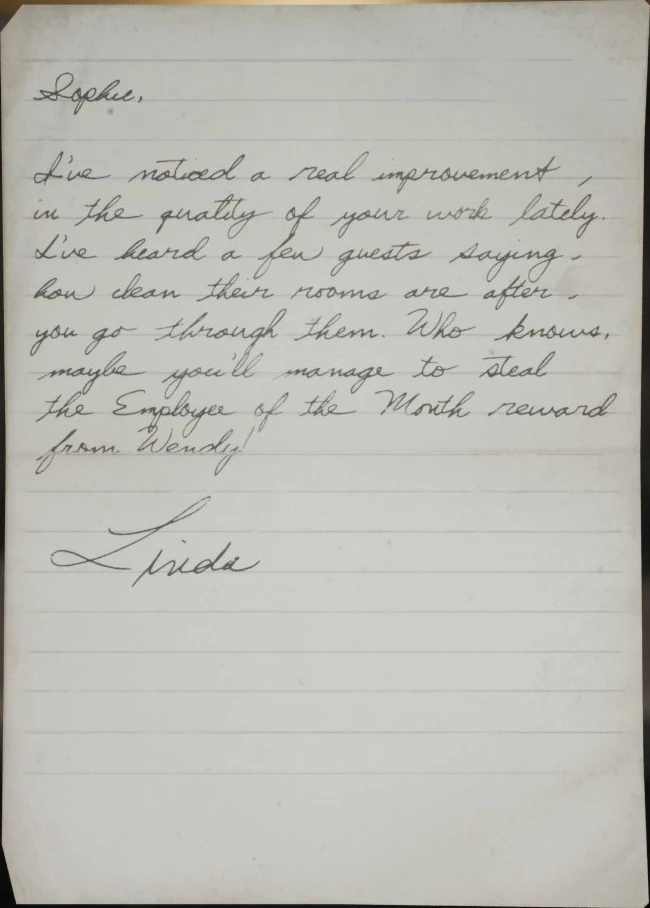 Sophie,
I've noticed a real improvement,
in the quality of your work lately.
I've heard a few guests saying
how clean their rooms are after
you go through them. Who knows,
maybe you'll manage to steal
the Employee of the Month reward
from Wendy!
Linda